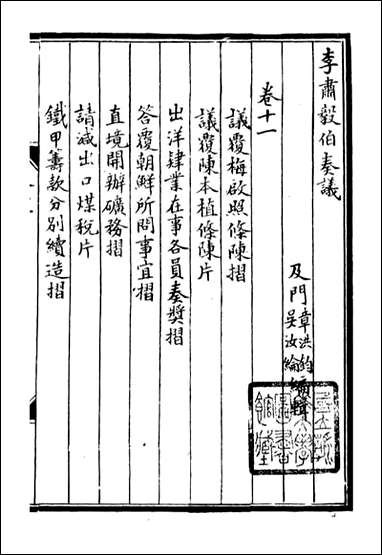 李肅毅伯奏議
及門章洪鈞吳汝綸編輯
卷十一
議覆梅啟照條陳摺
議覆陳本植條陳片
出洋肄業在事各員奏獎摺
答覆朝鮮所問事宜摺
直境開辦礦務摺
請減出口煤稅片
鐵甲籌款分別續造摺